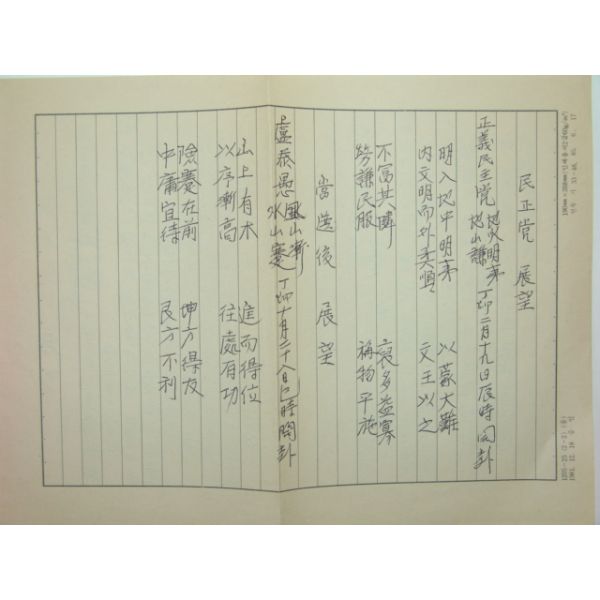 民正党 展望
正義民主党 地火明夷 地山謙 丁卯二月十九日辰時問卦
明入地中明夷 以蒙大難
内文明而外柔順 文王以之
不富其隣 裒多益寡
勞謙民服 稱物平施
當選後 展望
盧泰愚 風山漸 水山蹇 丁卯十月二十八日巳時問卦
山上有木 進而得位
以序漸高 往處有功
險蹇在前 坤方得友
中庸宜待 艮方不利